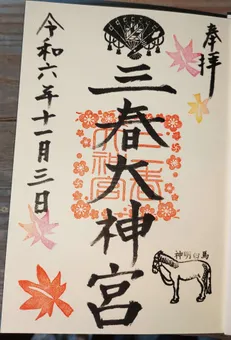 奉拝
三春大神宮
令和六年十一月三日
神明白馬